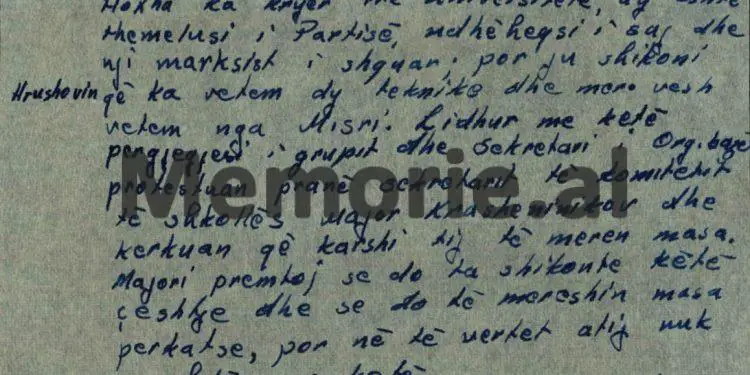 Hoxha ka kryer
themelusi i Partisë, udhëheqsi i saj dhe
nji marksist i shquar; por ju shikoni
Hrushovin që ka vetem dy teknike dhe merr vesh
vetem nga Misri. Lidhur me ketë
pergjegjesi i grupit dhe Sekretari i Org. bazë
protestuan pranë sekretarit të Komitetit
të shkollës Major Krasheninikov dhe
kerkuan që karshi tij të meren masa.
Majori premtoj se do ta shikonte këtë
çeshtje dhe se do të mereshin masa
perkatse, por në të vertet atij nuk
Memorie.al